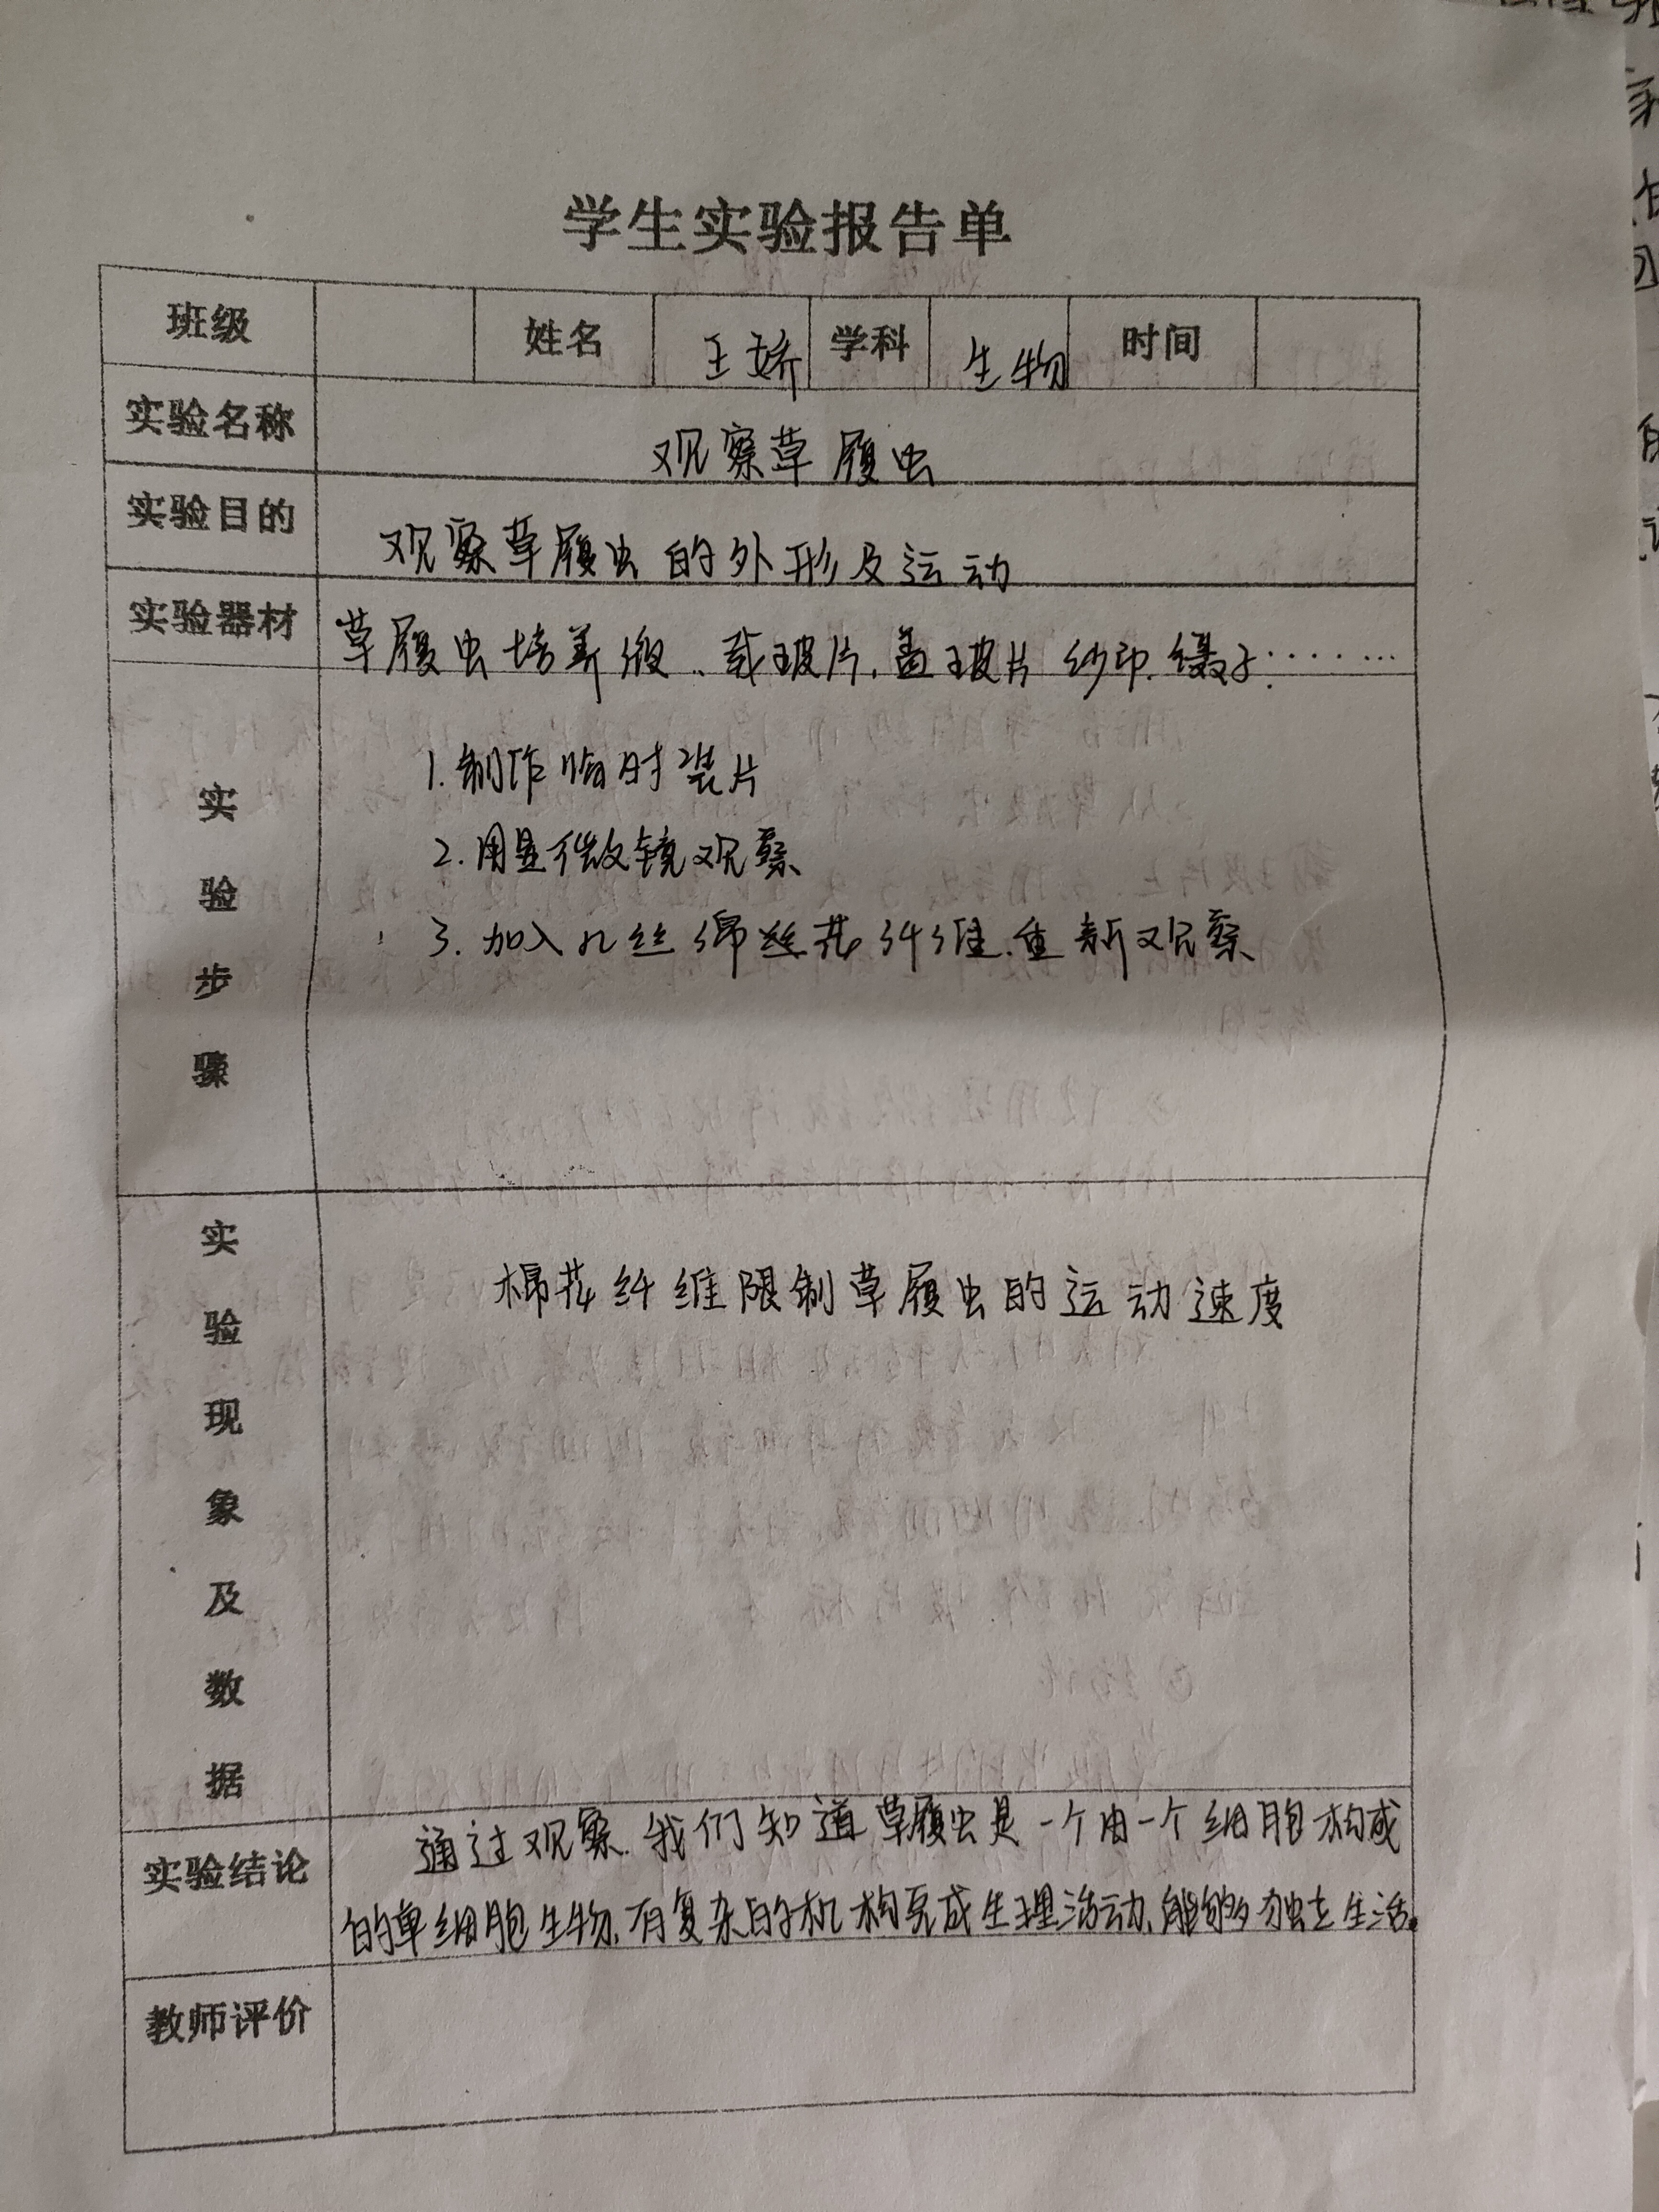 学生实验报告单
班级 姓名 王娇 学科 生物 时间
实验名称 观察草履虫
实验目的 观察草履虫的外形及运动
实验器材 草履虫培养液、载玻片、盖玻片 纱布、镊子……
实验步骤
1.制作临时装片
2.用显微镜观察
3.加入几丝绵丝花纤维、重新观察
实验现象及数据
棉花纤维限制草履虫的运动速度
实验结论
通过观察、我们知道草履虫是一个由一个细胞构成
的单细胞生物、有复杂的机构完成生理活动、能够独立生活。
教师评价